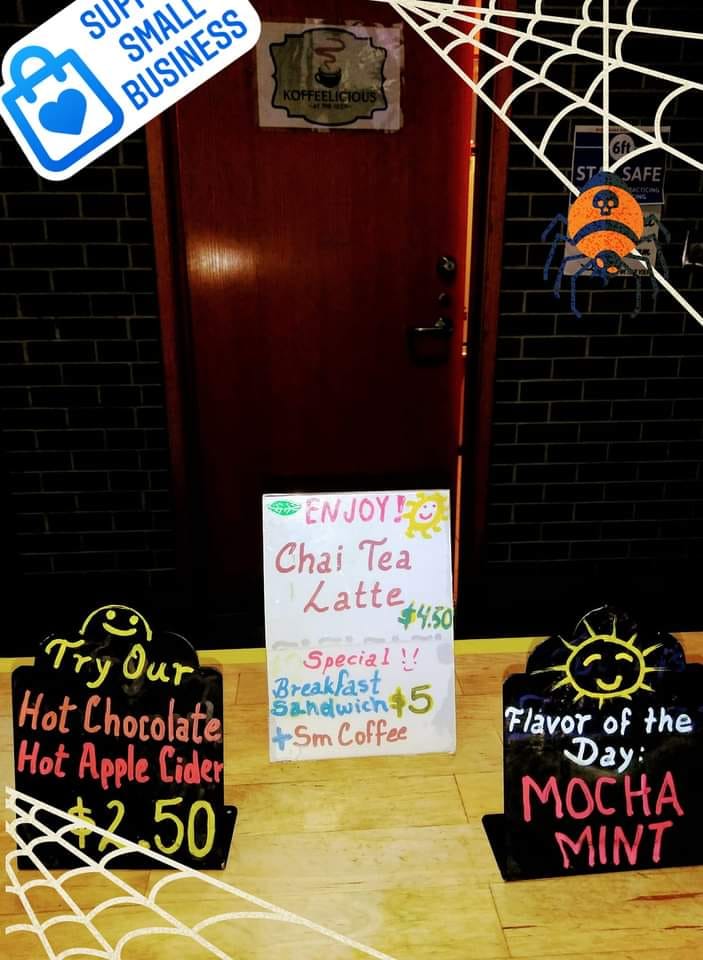 SMALL
BUSINESS
KOFFEELICIOUS
6ft
SAFE
ENJOY!
Chai Tea
Latte
$4.50
Special!!
Breakfast
Sandwich $5
+ Sm Coffee
Try Our
Hot Chocolate
Hot Apple Cider
$2.50
Flavor of the
Day:
MOCHA
MINT